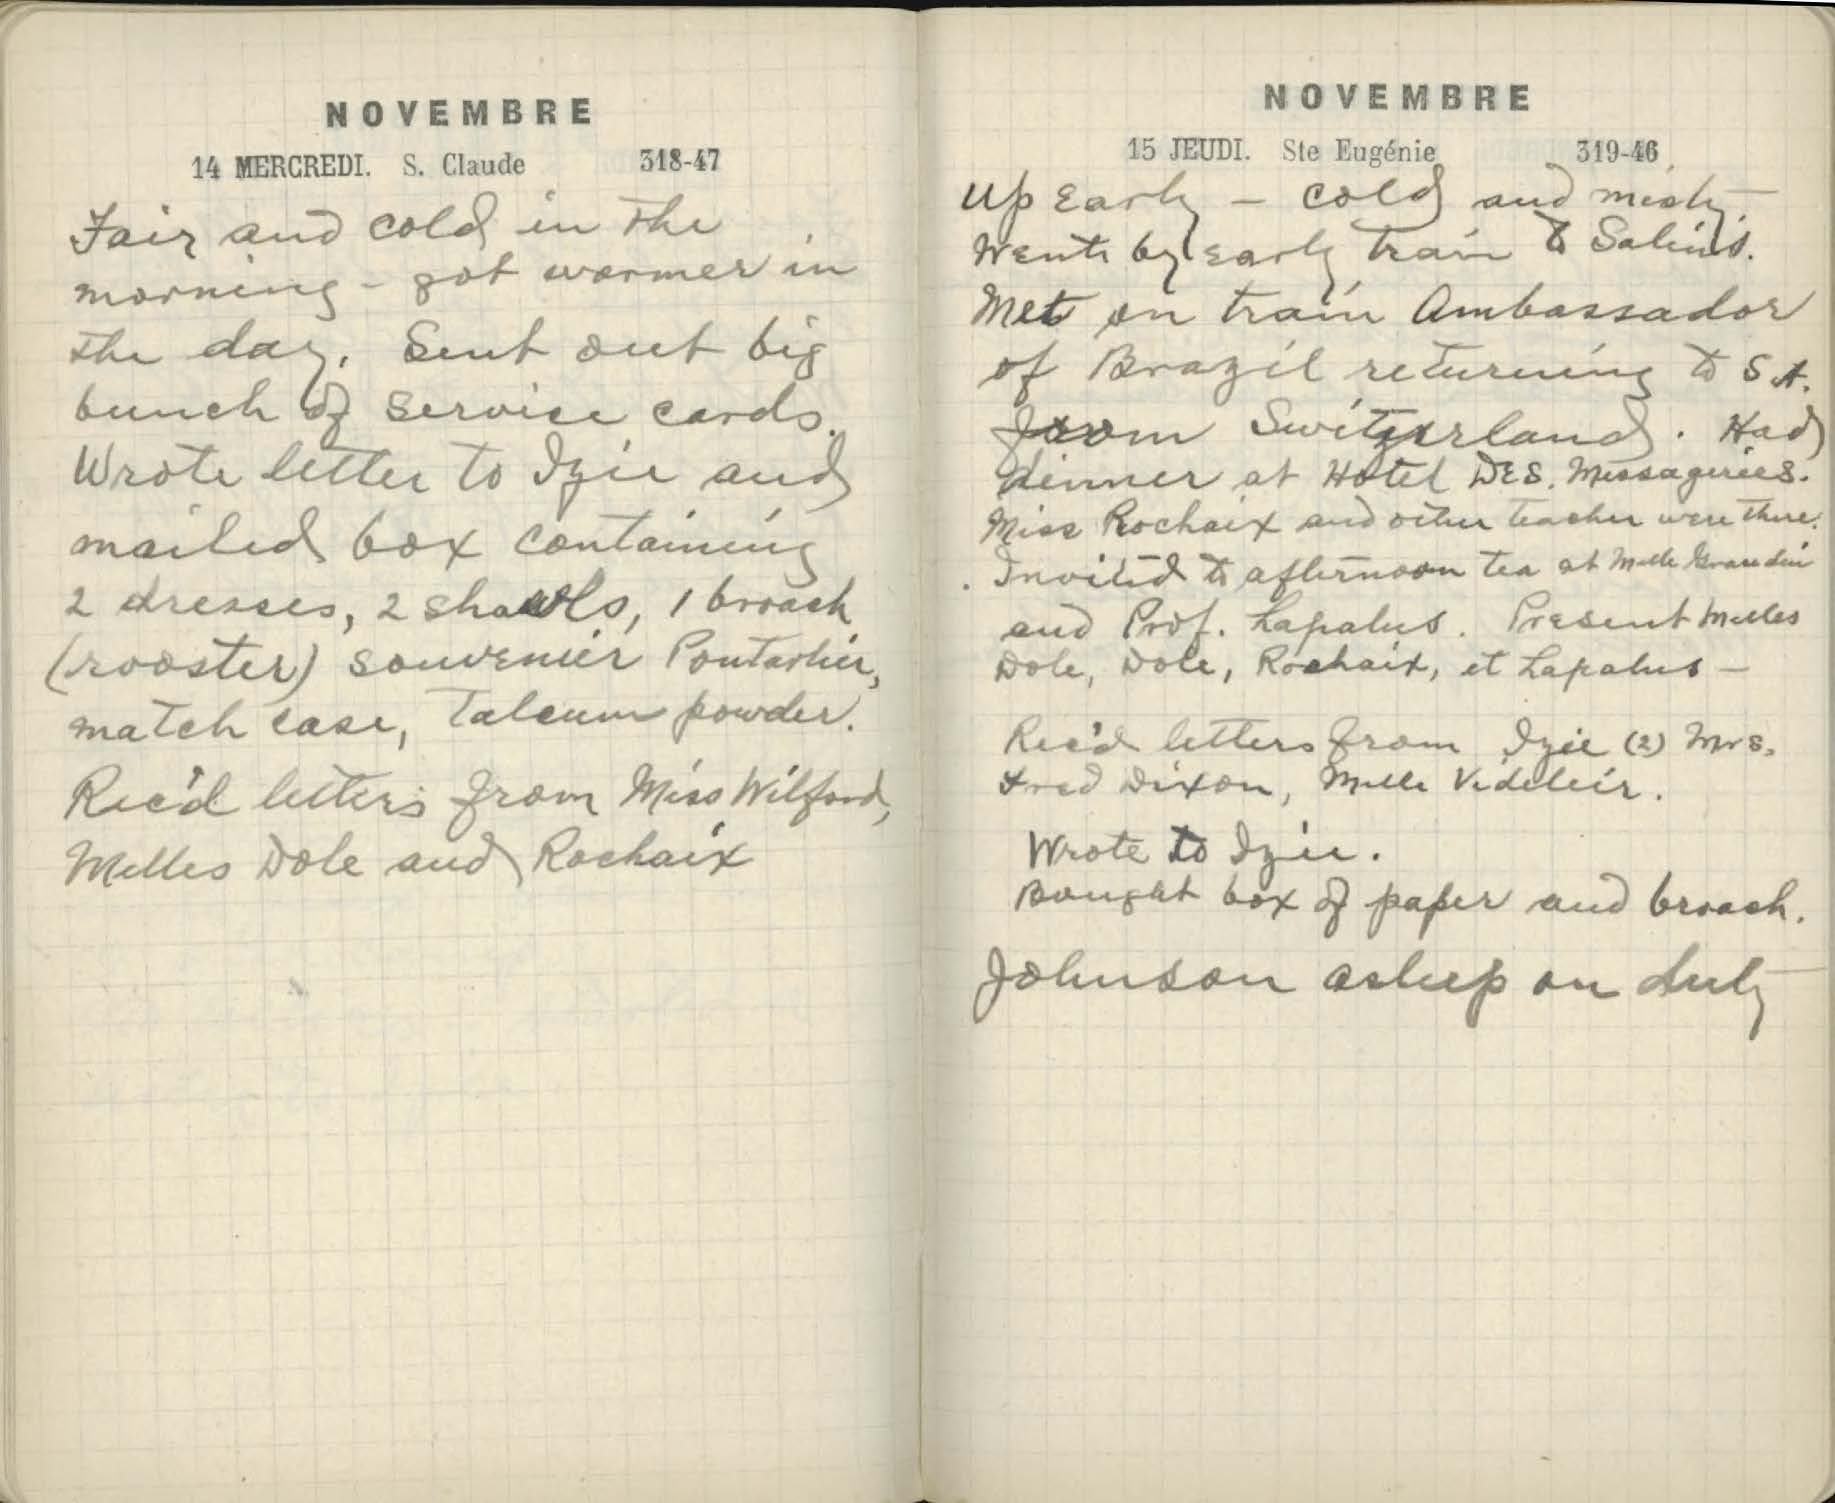 NOVEMBRE
14 MERCREDI. S. Claude 318-47
Fair and cold in the
morning - got warmer in
the day. Sent out big
bunch of service cards.
Wrote letter to Izie and
mailed box containing
2 dresses, 2 shawls, 1 broach
(rooster) souvenier Pontarlier,
match case, Talcum powder.
Rec'd letters from Miss Wilford,
Melles Dole and Rochaix
NOVEMBRE
15 JEUDI. Ste Eugénie 319-46
Up Early - cold and misty -
Went by early train to Salins.
Met on train Ambassador
of Brazil returning to S A.
from Switzerland. Had
dinner at Hotel DES. Messageries.
Miss Rochaix and other teacher were there.
Invited to afternoon tea at Melle Grandin
and Prof. Lapalus. Present Melles
Dole, Dole, Rochaix, et Lapalus -
Rec'd letters from Izie (2) Mrs.
Fred Dixon, Melle Videlier.
Wrote to Izie.
Bought box of paper and broach.
Johnson asleep on duty